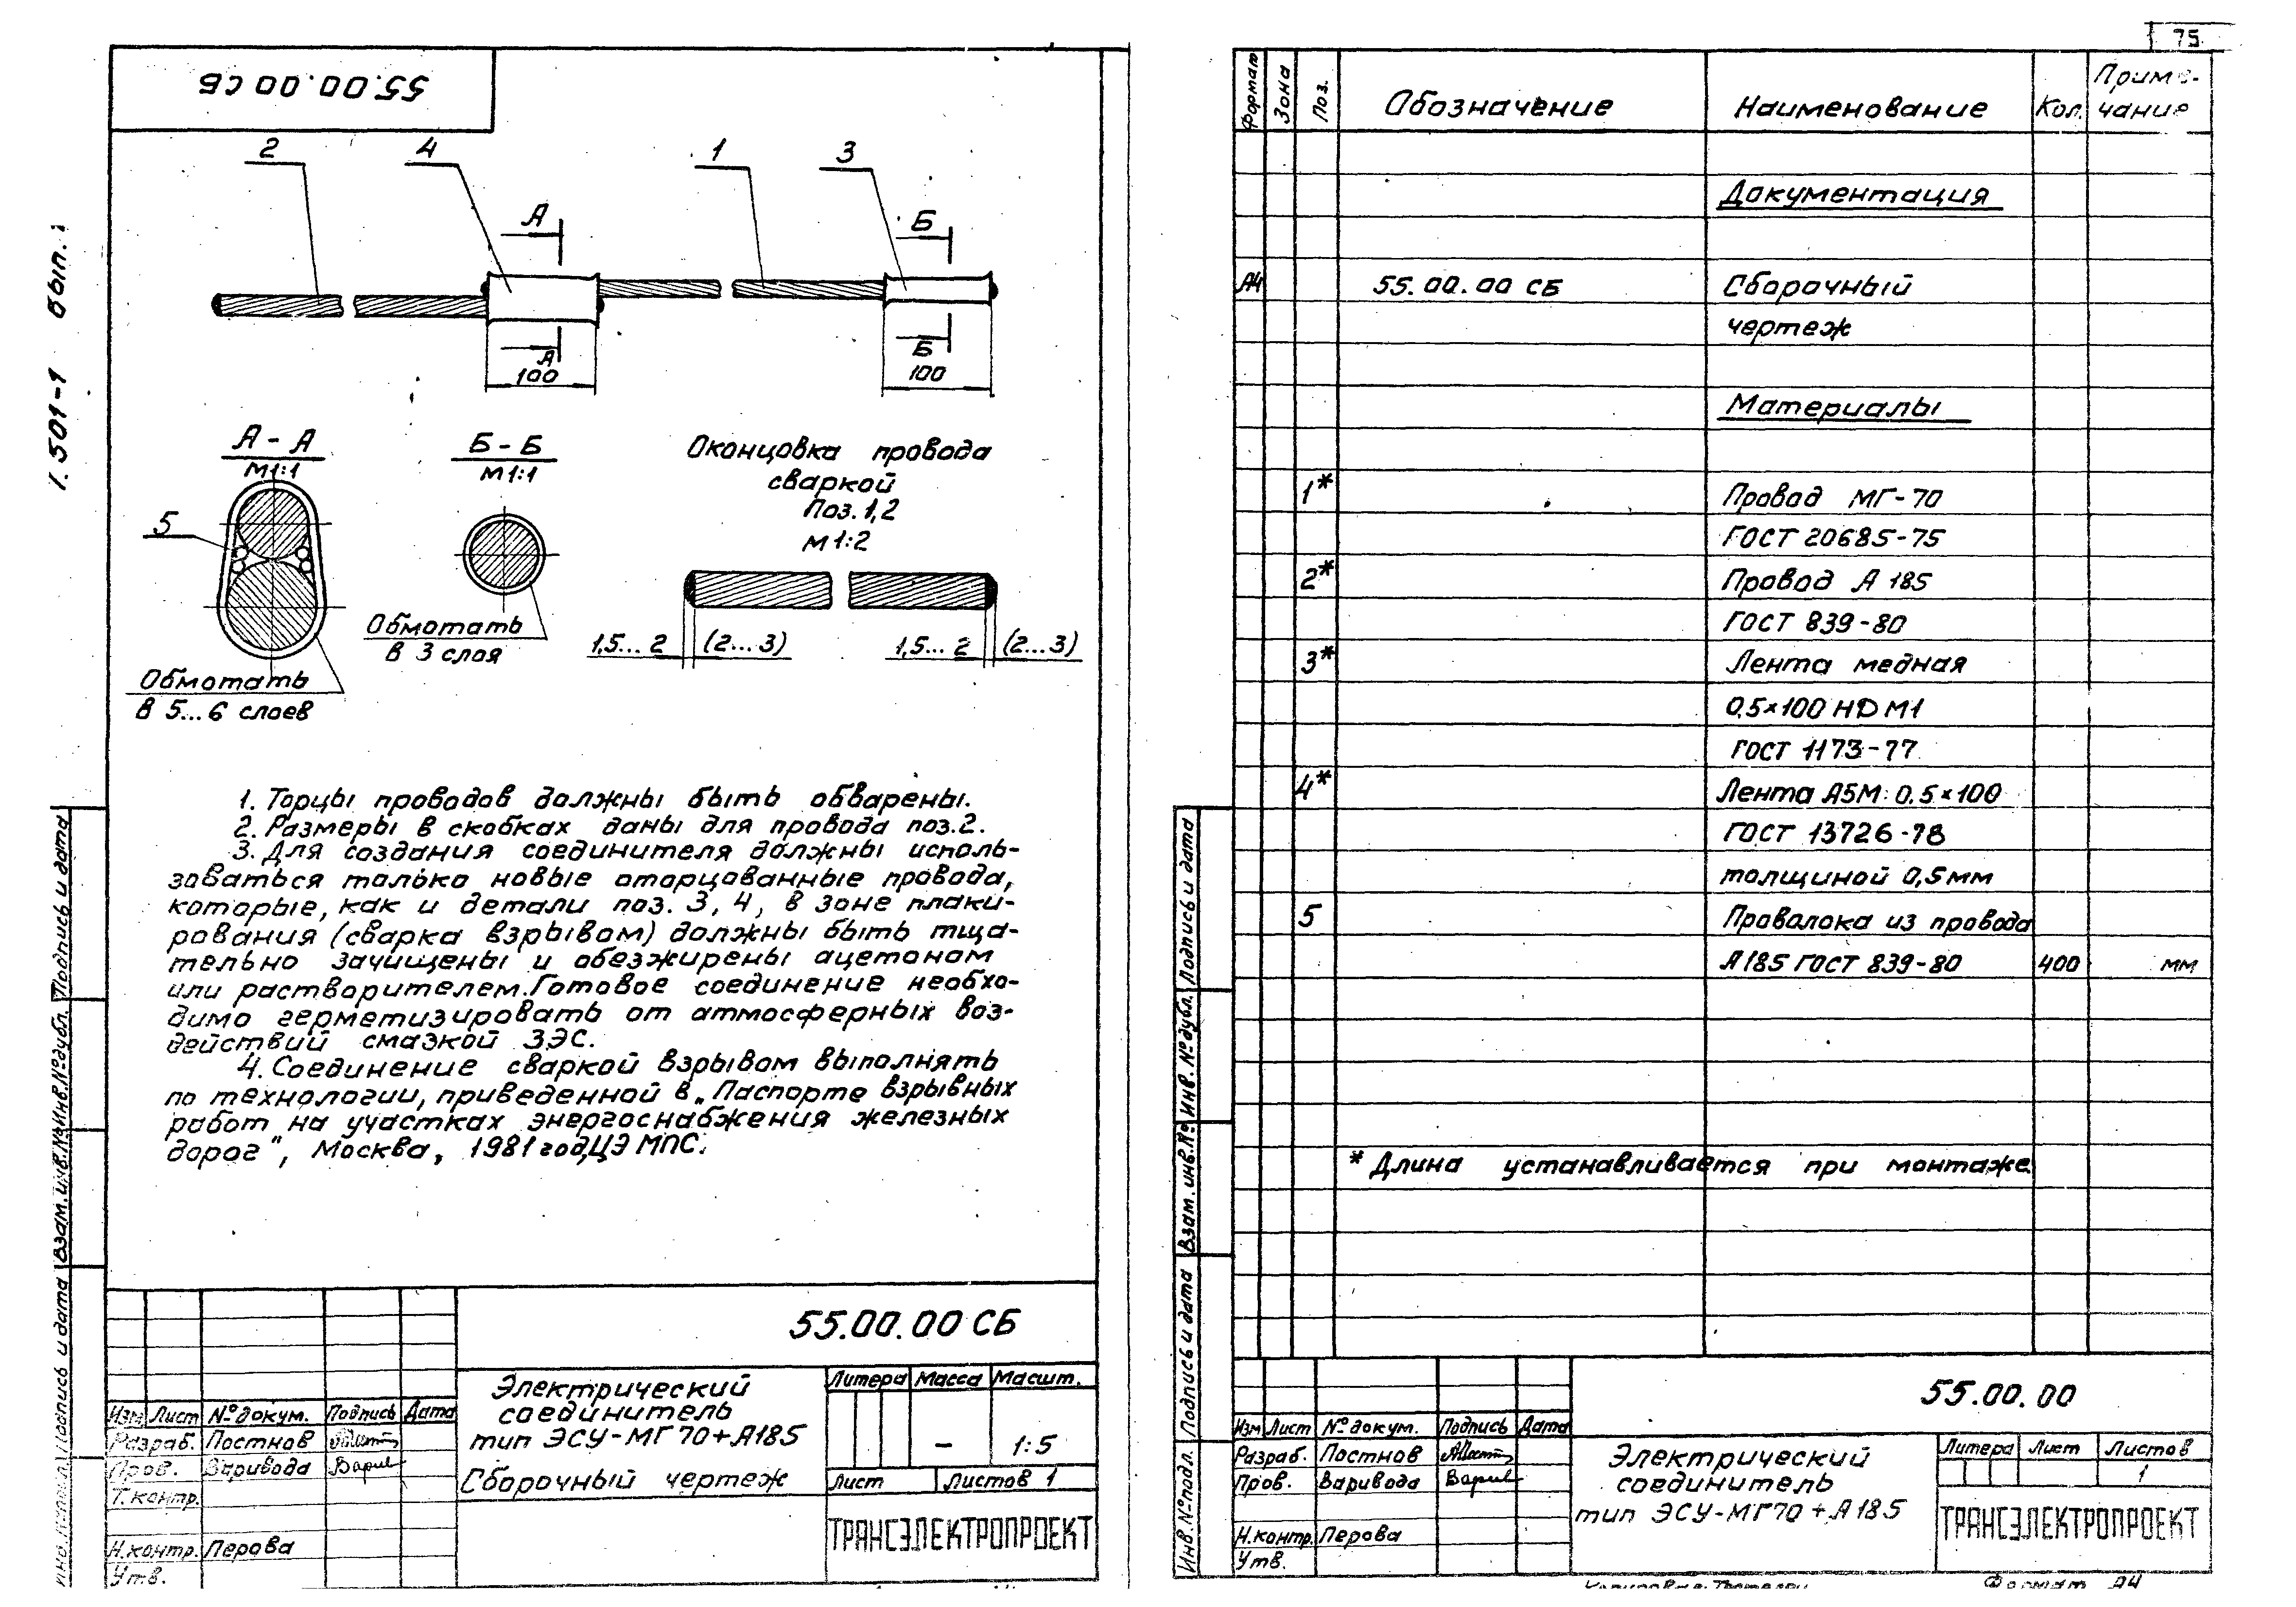 75
55.00.00 СБ
1.501-1 вып. 1
2
4
1
3
А
Б
А
100
Б
100
А - А
М1:1
Б - Б
М1:1
5
Обмотать
в 3 слоя
Обмотать
в 5...6 слоев
Оконцовка провода
сваркой
Поз. 1,2
М 1:2
1,5... 2 (2... 3) 1,5... 2 (2...3)
1. Торцы проводов должны быть обварены.
2. Размеры в скобках даны для провода поз.2.
3. Для создания соединителя должны исполь-
зоваться только новые оторцованные провода,
которые, как и детали поз. 3, 4, в зоне плаки-
рования (сварка взрывом) должны быть тща-
тельно зачищены и обезжирены ацетоном
или растворителем. Готовое соединение необхо-
димо герметизировать от атмосферных воз-
действий смазкой ЗЭС.
4. Соединение сваркой взрывом выполнять
по технологии, приведенной в „Паспорте взрывных
работ на участках энергоснабжения железных
дорог", Москва, 1981 год, ЦЭ МПС.
Подпись и дата
Инв.№дубл.
Взам.инв.№
Подпись и дата
55.00.00 СБ
Электрический
соединитель
тип ЭСУ-МГ70+А185
Сборочный чертеж
Литера Масса Масшт.
– 1:5
Лист Листов 1
ТРАНСЭЛЕКТРОПРОЕКТ
Изм Лист №докум. Подпись Дата
Разраб. Постнов
Пров. Варивода
Т.контр.
Н.контр. Перова
Утв.
Формат Зона Поз. Обозначение Наименование Кол. Приме-
чание
Документация
А4 55.00.00 СБ Сборочный
чертеж
Материалы
1* Провод МГ-70
ГОСТ 20685-75
2* Провод А 185
ГОСТ 839-80
3* Лента медная
0,5×100 НД М1
ГОСТ 1173-77
4* Лента А5М 0.5×100
ГОСТ 13726-78
толщиной 0,5мм
5 Проволока из провода
А185 ГОСТ 839-80 400 мм
* Длина устанавливается при монтаже
Подпись и дата
Инв.№дубл.
Взам.инв.№
Подпись и дата
Инв.№подл.
55.00.00
Изм Лист №докум. Подпись Дата
Разраб. Постнов
Пров. Варивода
Н.контр. Перова
Утв.
Электрический
соединитель
тип ЭСУ-МГ70+А185
Литера Лист Листов
1
ТРАНСЭЛЕКТРОПРОЕКТ
Формат А4